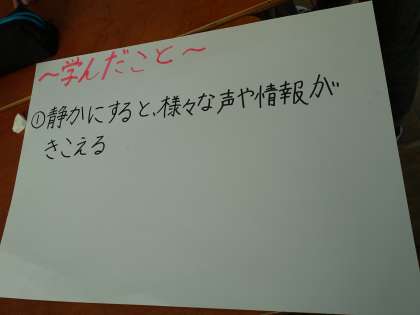 ～学んだこと～
①静かにすると、様々な声や情報が
きこえる